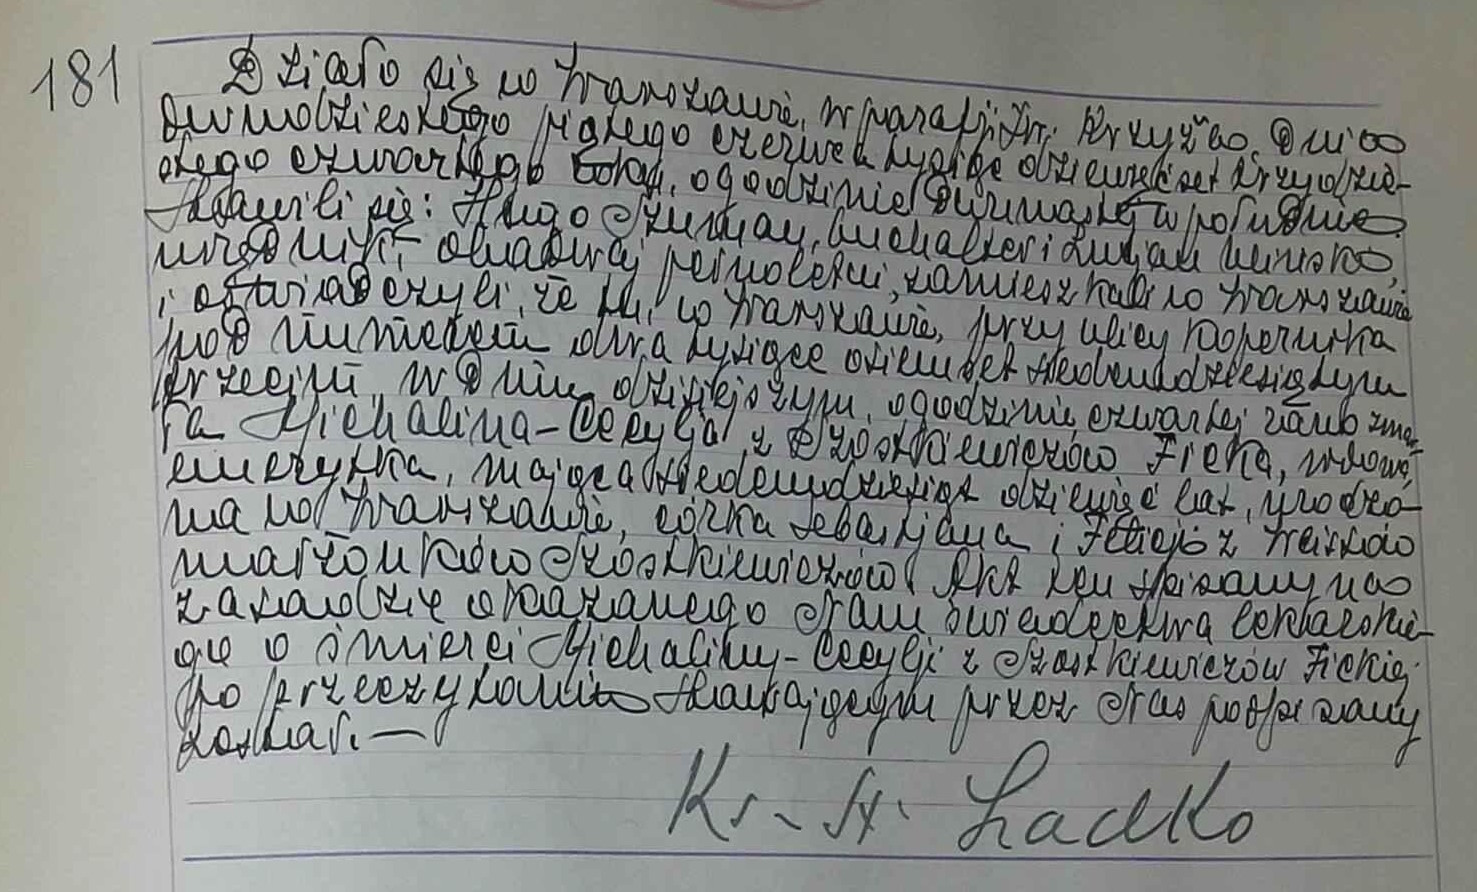 181
Działo się w Warszawie, w parafji Św. Krzyża, dnia
dwudziestego piątego czerwca tysiąc dziewięćset trzydzie-
stego czwartego roku, o godzinie dwunastej w południe.
Stawili się: Hugo buchalter i Lucjan
obadwaj pełnoletni, zamieszkali w Warszawie
i oświadczyli, że tu, w Warszawie, przy ulicy Kopernika
pod numerem dwa tysiące osiemset siedemdziesiątym
trzecim, w dniu dzisiejszym, o godzinie czwartej zrana zmar-
ła Michalina-Cecylja z Szostkiewiczów Ficka, wdowa,
emerytka, mająca siedemdziesiąt dziewięć lat, urodzo-
na w Warszawie, córka Sebastjana i z
małżonków Szostkiewiczów. Akt ten spisany na
zasadzie okazanego Nam świadectwa lekarskie-
go o śmierci Michaliny-Cecylji z Szostkiewiczów Fickiej
po przeczytaniu stawającym przez Nas podpisany
został. —
Ks. St. Ladko